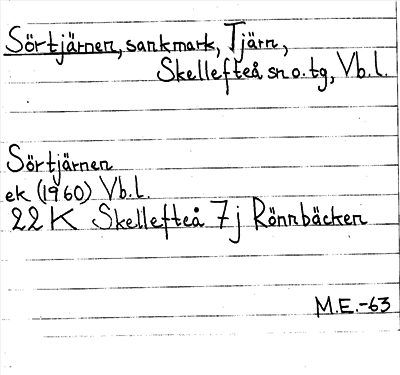 Sörtjärnen, sankmark, Tjärn,
Skellefteå sn o. tg, Vb.l.
Sörtjärnen
ek (1960) Vb.l.
22 K Skellefteå 7j Rönnbäcken
M.E.-63